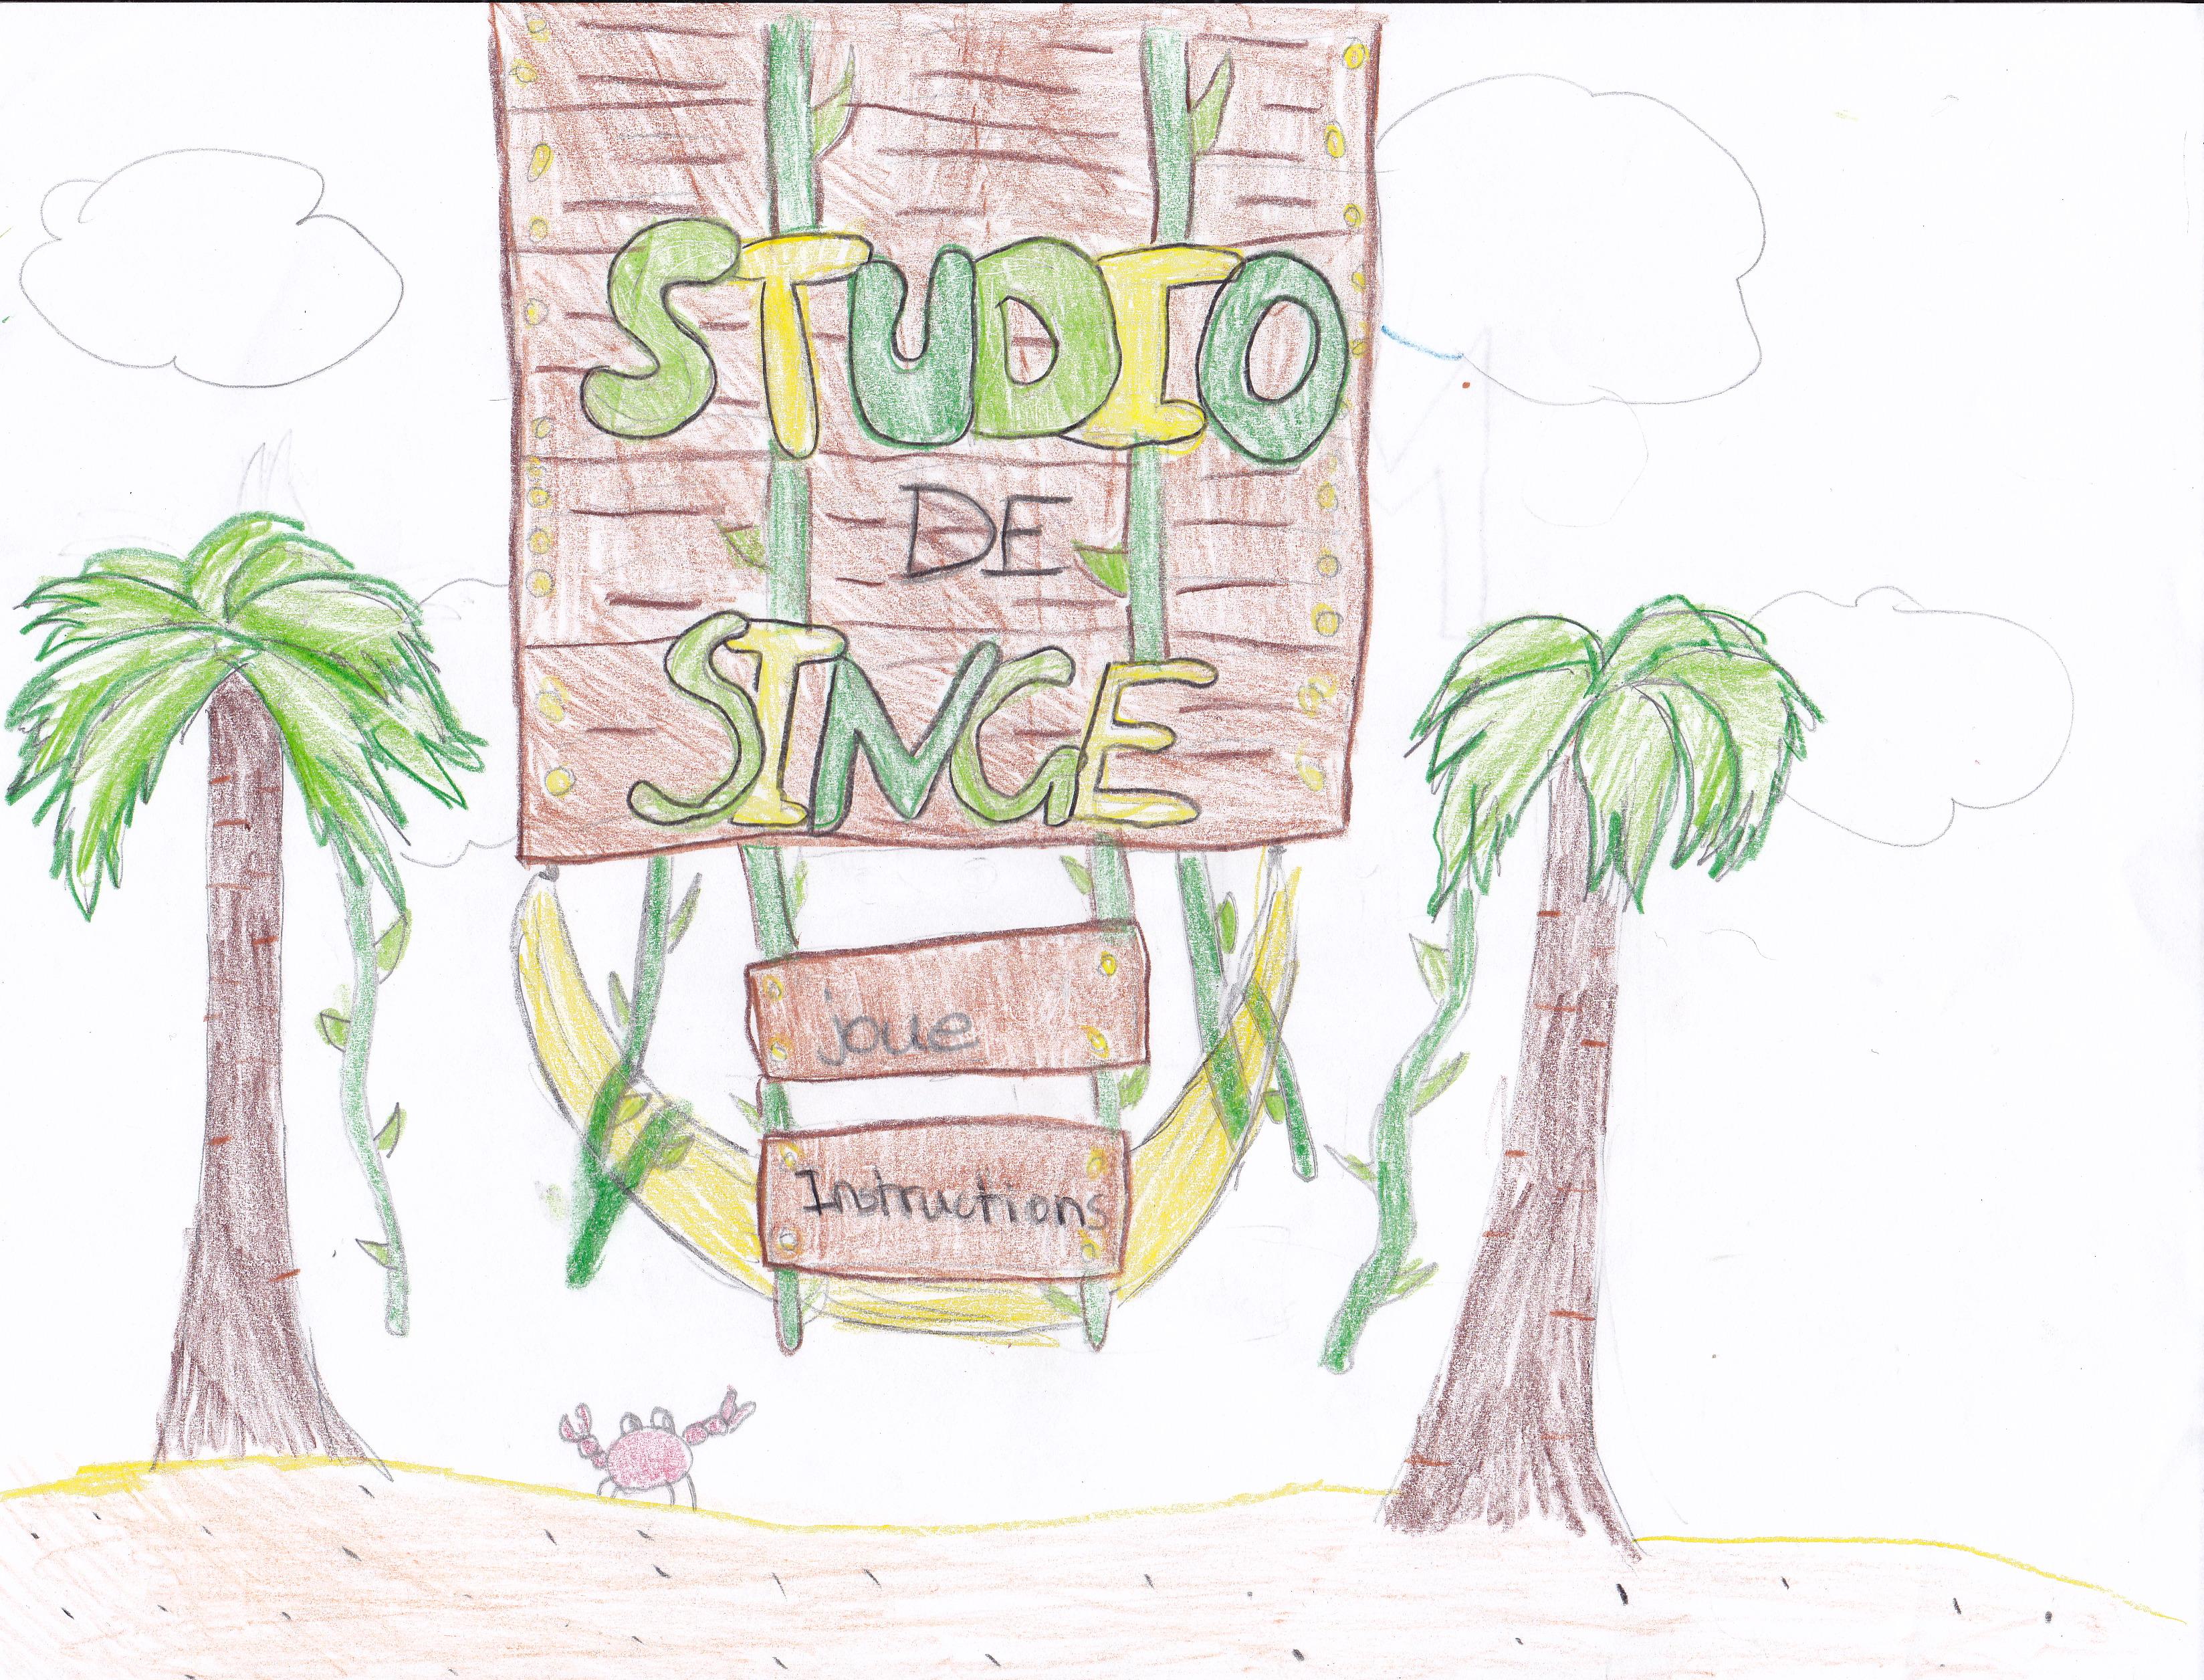 STUDIO
DE
SINGE
joue
Instructions